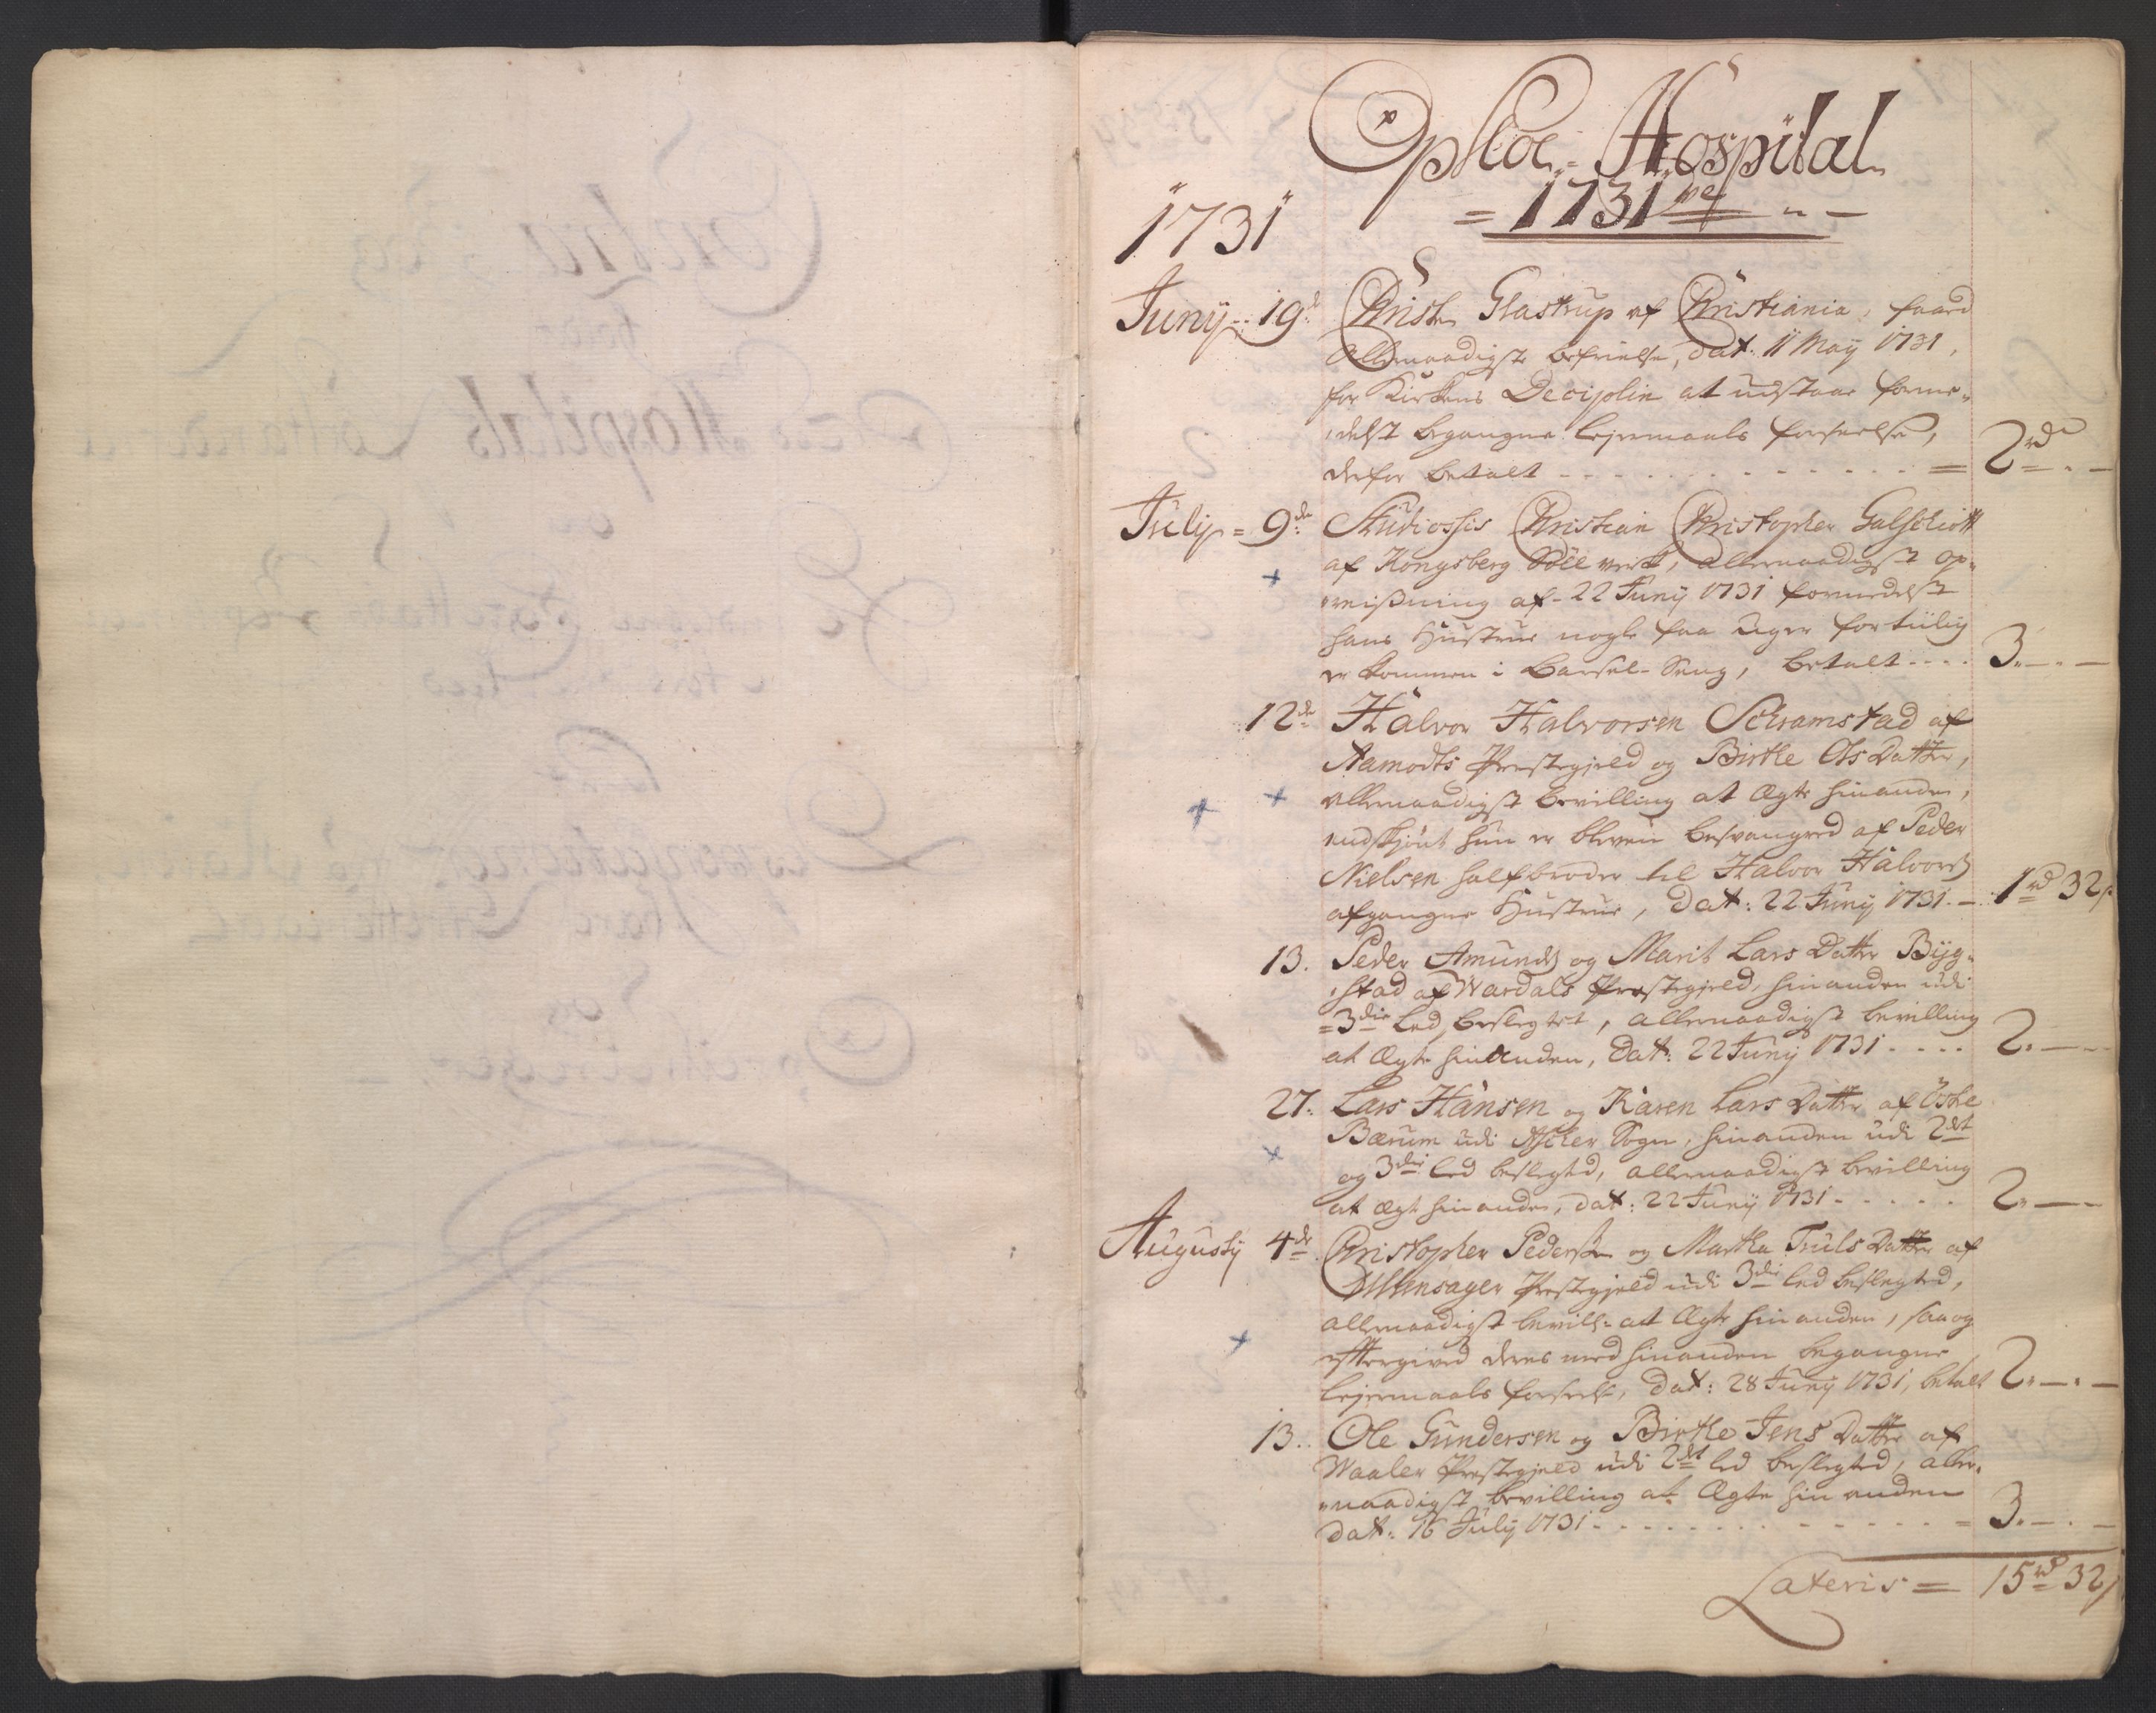 Opsloe Hospital
1731
1731
Juny 19 Christen Glastrup af Christiania, faaed
Allernaadigste befrielse, dat: 11 May 1731,
for Kirkens Deciplin at udstaae forme-
delst begangne Lejermaals forseelse,
derfor betalt - - - = 2 rd
July = 9de Studiosus Christian Christopher Galschiøtt
af Kongsberg Sølverk, allernaadigst op-
reisning af 22 Juny 1731 formedelst
hans Hustrue nogle faa Uger for tiilig
er kommen i Barsel-Seng, betalt - - - 3 - -
12de Halvor Halvorsen Schramstad af
Aamodts Prestegjeld og Birthe Ols Datter,
allernaadigst bevilling at ægte hinanden,
endskjønt hun er bleven besvangred af Peder
Nielsen halfbroder til Halvor Halvors
afgangne Hustrue, dat: 22 Juny 1731 - 1 rd 32 s
13. Peder Amunds og Marit Lars Datter Byg-
stad af Wardals Prestegjeld, hinanden udi
3die Led beslegtet, allernaadigst bevilling
at ægte hinanden, dat: 22 Juny 1731 - - - 2 - -
27. Lars Hansen og Karen Lars Datter af Østre
Bærum udi Ascher Sogn, hinanden udi 2det
og 3die led beslegted, allernaadigst bevilling
at ægte hinanden, dat: 22 Juny 1731 - - - 2 - -
Augusty 4de Christopher Pedersen og Martha Truls Datter af
Ullensager Prestegjeld udi 3die led beslegted,
allernaadigst bevill: at ægte hinanden, saa og
eftergived deres med hinanden begangne
lejermaals forseelse, dat: 28 Juny 1731, betalt 2 - -
13. Ole Gundersen og Birthe Jens Datter af
Waaler Prestegjeld udi 2det led beslegted, aller-
naadigst bevilling at ægte hinanden
dat: 16 July 1731 - - - = 3 - -
Lateris = 15 rd 32 s